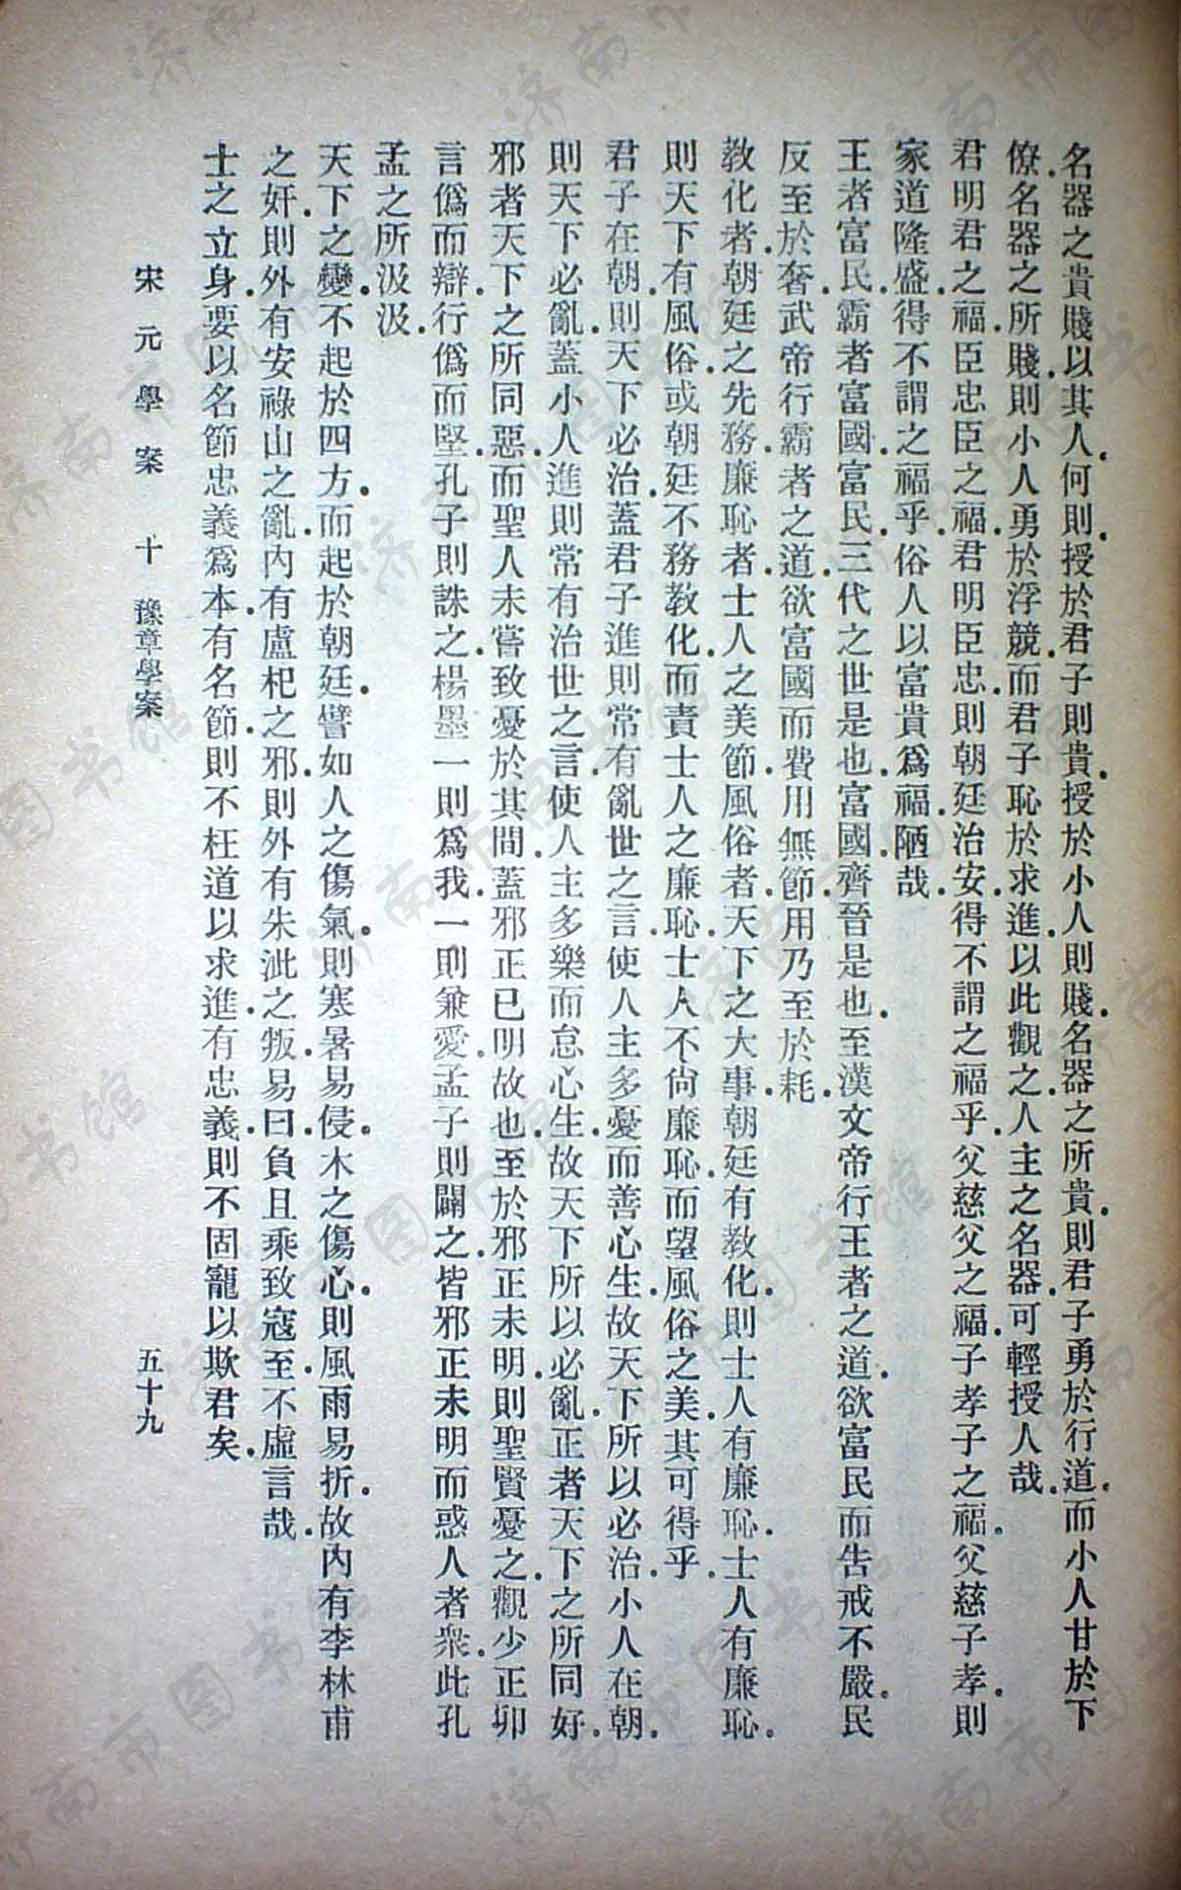 名器之貴賤以其人.何則.授於君子則貴.授於小人則賤.名器之所貴.則君子勇於行道.而小人甘於下
僚.名器之所賤.則小人勇於浮競.而君子恥於求進.以此觀之.人主之名器.可輕授人哉.
君明.君之福.臣忠.臣之福.君明臣忠.則朝廷治安.得不謂之福乎.父慈.父之福.子孝.子之福.父慈子孝.則
家道隆盛.得不謂之福乎.俗人以富貴爲福.陋哉.
王者富民.霸者富國.富民.三代之世是也.富國.齊晉是也.至漢文帝行王者之道.欲富民而告戒不嚴.民
反至於奢.武帝行霸者之道.欲富國而費用無節.用乃至於耗.
教化者.朝廷之先務.廉恥者.士人之美節.風俗者.天下之大事.朝廷有教化.則士人有廉恥.士人有廉恥.
則天下有風俗.或朝廷不務教化.而責士人之廉恥.士人不尙廉恥.而望風俗之美.其可得乎.
君子在朝.則天下必治.蓋君子進則常有亂世之言.使人主多憂而善心生.故天下所以必治.小人在朝.
則天下必亂.蓋小人進則常有治世之言.使人主多樂而怠心生.故天下所以必亂.正者天下之所同好.
邪者天下之所同惡.而聖人未嘗致憂於其間.蓋邪正已明故也.至於邪正未明.則聖賢憂之.觀少正卯
言僞而辯.行僞而堅.孔子則誅之.楊墨一則爲我.一則兼愛.孟子則闢之.皆邪正未明而惑人者衆.此孔
孟之所汲汲.
天下之變.不起於四方.而起於朝廷.譬如人之傷氣.則寒暑易侵.木之傷心.則風雨易折.故內有李林甫
之奸.則外有安祿山之亂.內有盧杞之邪.則外有朱泚之叛.易曰.負且乘.致寇至.不虛言哉.
士之立身.要以名節忠義爲本.有名節.則不枉道以求進.有忠義.則不固寵以欺君矣.
宋元學案 十 豫章學案 五十九
济南市图书馆